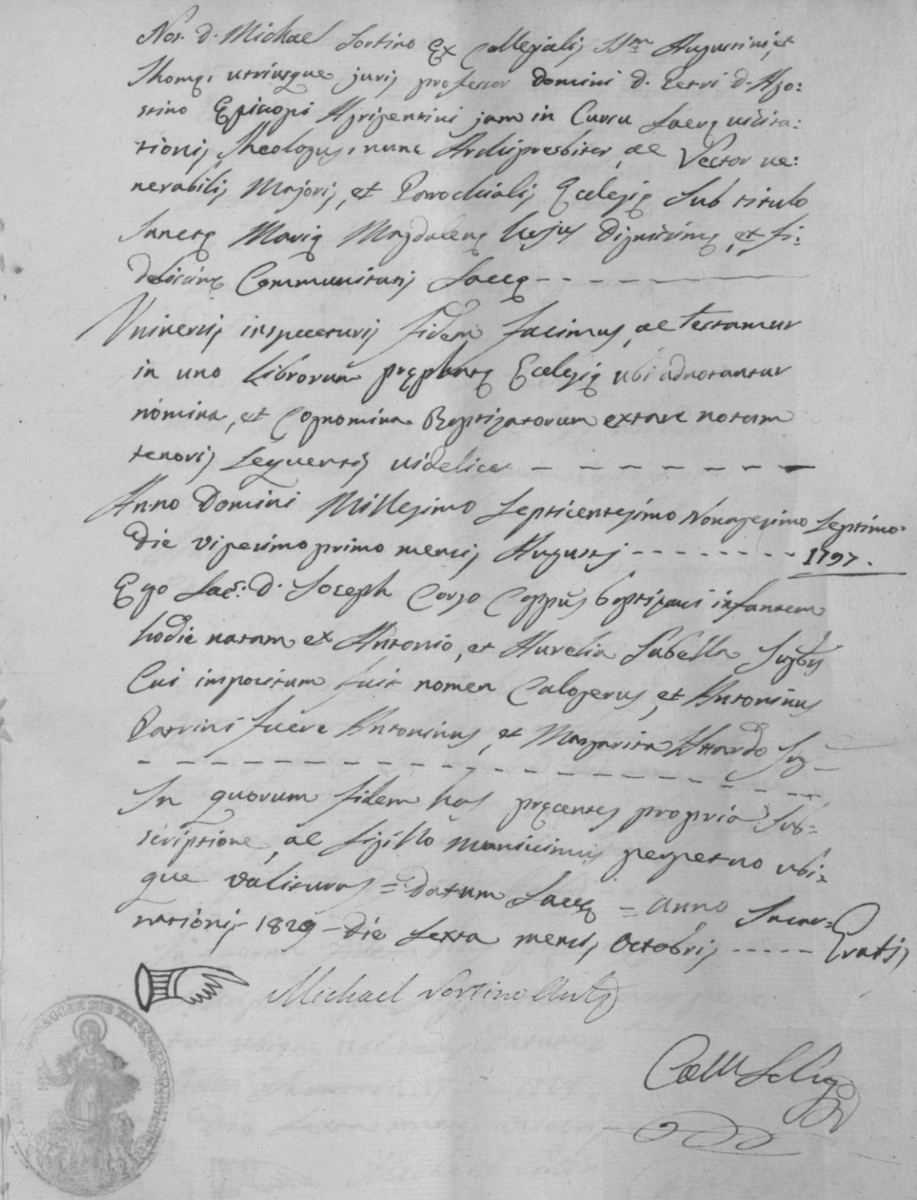 Nos. D. Michael Sortino Ex Collegialis SSm Augustini, et
Thomę, utriusque juris professor Domini D. Petri D. Ago:
stino Episcopi Agrigentini jam in Cursu Sacrę visita:
tionis, Theologus, nunc Archipresbiter, ac Rector ve:
nerabilis Majoris, et Parochialis Ecclesię Sub titulo
Sanctę Marię Magdalenę hujus dignissimę, et fi:
delissimę Communitatis Saccę
Universis inspecturis fidem facimus, ac testamur
in uno librorum pręphatę Ecclesię ubi adnotantur
nomina, et Cognomina Baptizatorum extare notam
tenoris sequentis videlicet
Anno Domini Millesimo Septicentesimo Nonagesimo Septimo.
Die vigesimo primo mensis Augusti 1797.
Ego Sac: D. Joseph Corso Cappũs baptizavi infantem
hodie natum ex Antonio, et Aurelia Sabella Jugbus
Cui impositum fuit nomen Calogerus, et Antoninus
Patrini fuere Antoninus, et Margarita Attardo Jug
In quorum fidem has pręsentes propria Sub=
scriptione, ac sigillo munivimus perpetuo ubi=
que valituras = Datum Saccę = anno Incar=
nationis 1829 - die sexta mensis Octobris Gratis
Michael Sortino